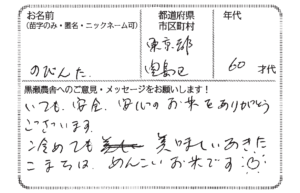 お名前
(苗字のみ・匿名・ニックネーム可)
都道府県
市区町村
年代
のびんた
東京都
豊島区
60才代
黒瀬農舎へのご意見・メッセージをお願いします!
いつも、安全、安心のお米をありがとう
ございます。
冷めても 美味しいあきた
こまちは、めんこいお米です